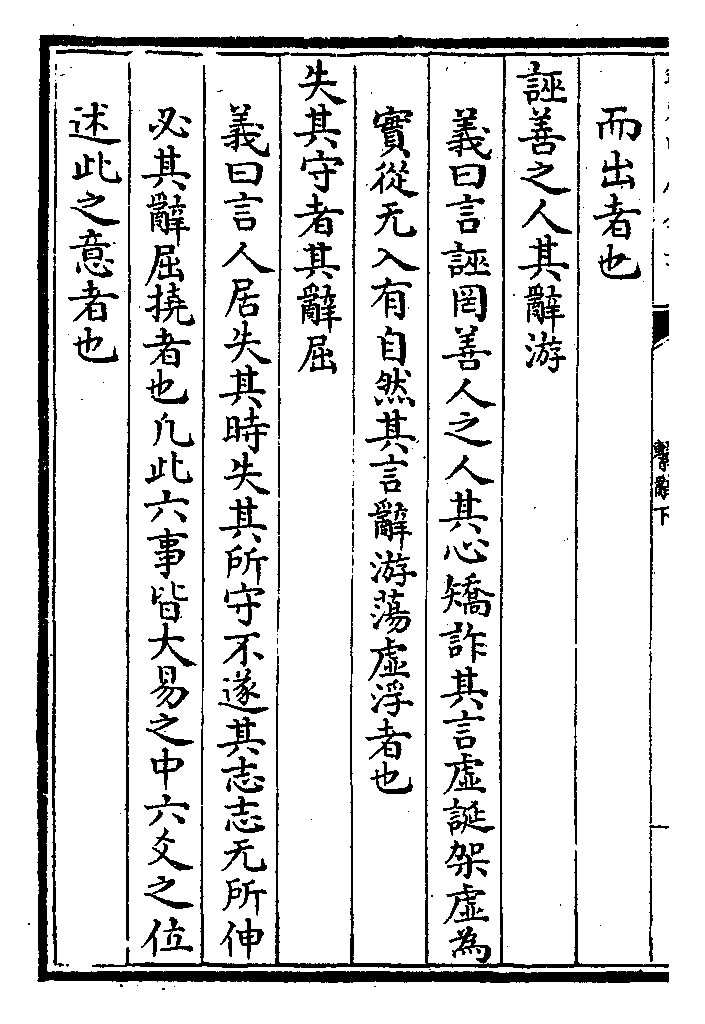 而出者也
誣善之人其辭游
義曰言誣罔善人之人其心矯詐其言虛誕架虛為
實從无入有自然其言辭游蕩虛浮者也
失其守者其辭屈
義曰言人居失其時失其所守不遂其志志无所伸
必其辭屈撓者也凡此六事皆大易之中六爻之位
述此之意者也
繫辭下